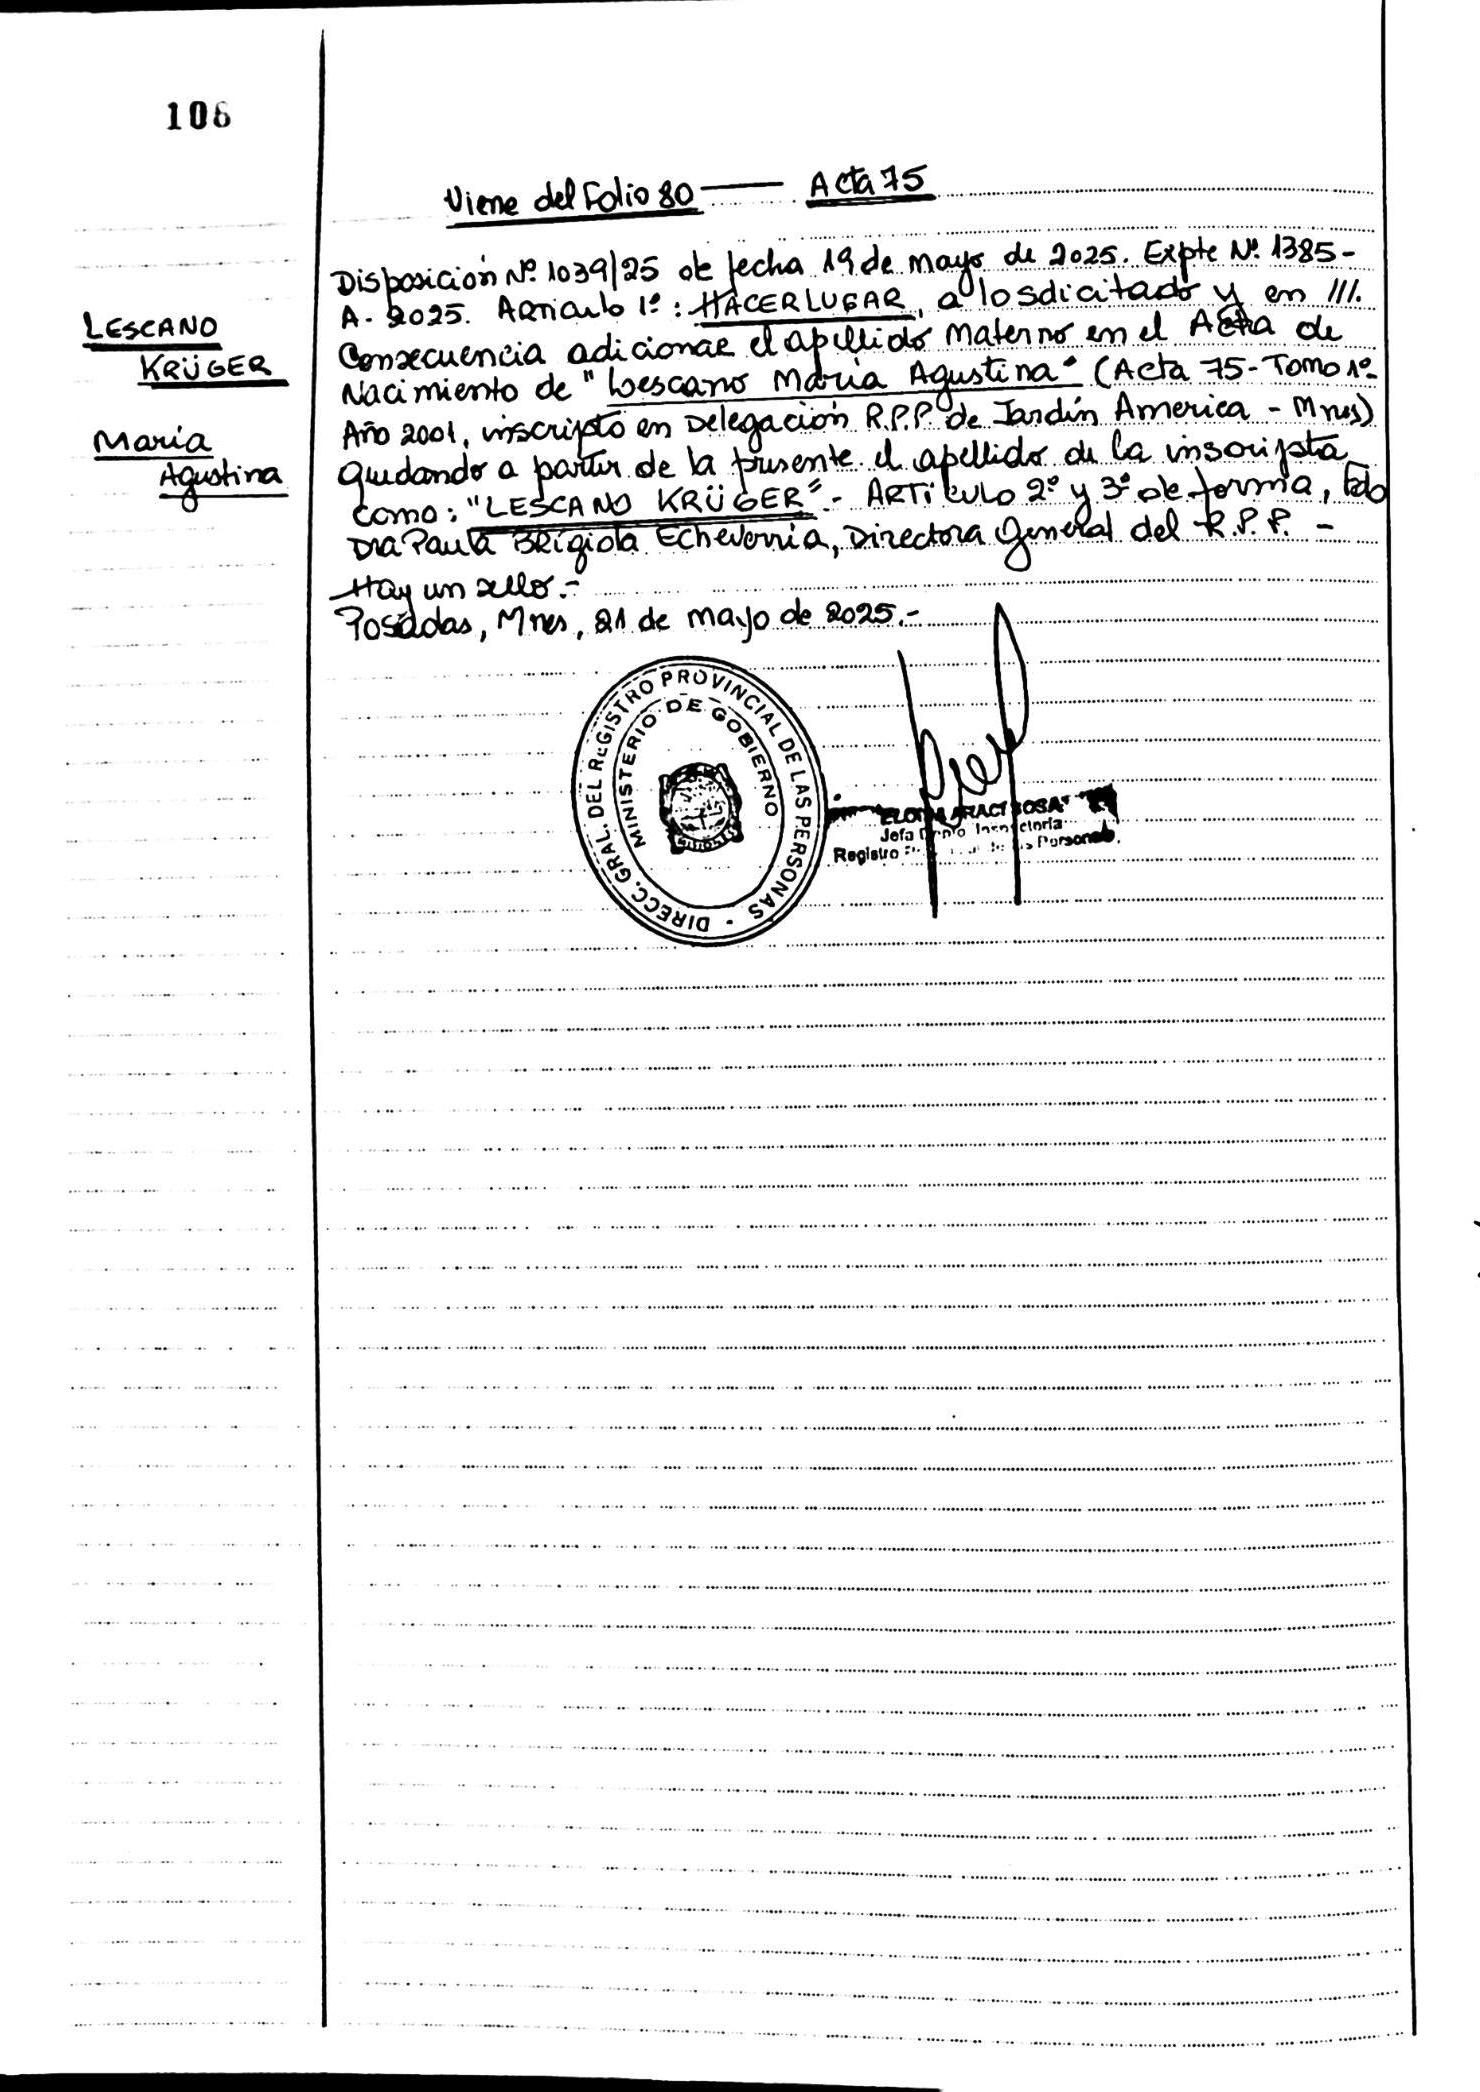 106
Viene del Folio 80 —— Acta 75
LESCANO
KRÜGER
María
Agustina
Disposición Nº 1039/25 de fecha 19 de mayo de 2025. Expte Nº 1385-
A- 2025. Articulo 1º: HACER LUGAR, a lo sdicitado y en ///.
Consecuencia adicionar el apellido Materno en el Acta de
Nacimiento de "Lescano María Agustina" (Acta 75- Tomo 1º-
Año 2001, inscripto en Delegación R.P.P. de Jardín America - Mnes)
quedando a partir de la presente el apellido de la inscripta
como: "LESCANO KRÜGER".- ARTículo 2º y 3º de forma, Fdo
Dra Paula Brígida Echeverría, Directora General del R.P.P. -
Hay un sello.-
Posadas, Mnes, 21 de mayo de 2025.-
DIRECC. GRAL. DEL REGISTRO PROVINCIAL DE LAS PERSONAS -
MINISTERIO DE GOBIERNO
SOSA
Jefa
Registro Personas